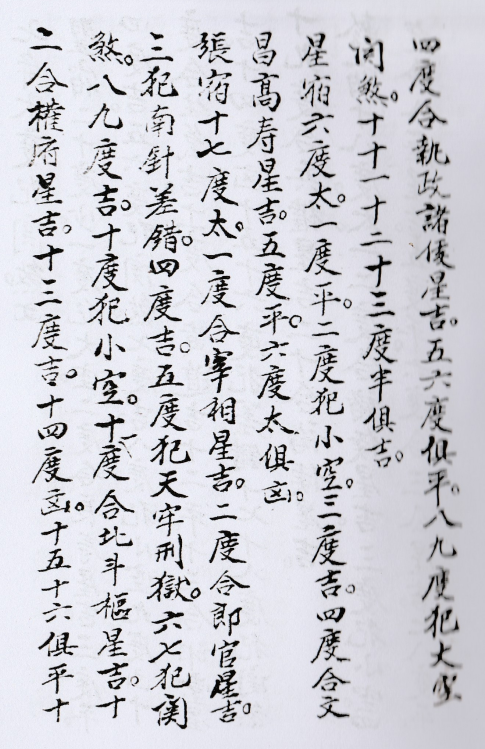 四度合執政諸侯星吉。五六度俱平。八九度犯大空
関煞。十十一十二十三度半俱吉。
星宿六度太。一度平。二度犯小空。三度吉。四度合文
昌高寿星吉。五度平。六度太俱凶。
張宿十七度太。一度合宰相星吉。二度合郎官星吉。
三犯南針差錯。四度吉。五度犯天牢刑獄。六七犯関
煞。八九度吉。十度犯小空。十一度合北斗樞星吉。十
二合權府星吉。十三度吉。十四度凶。十五十六俱平十